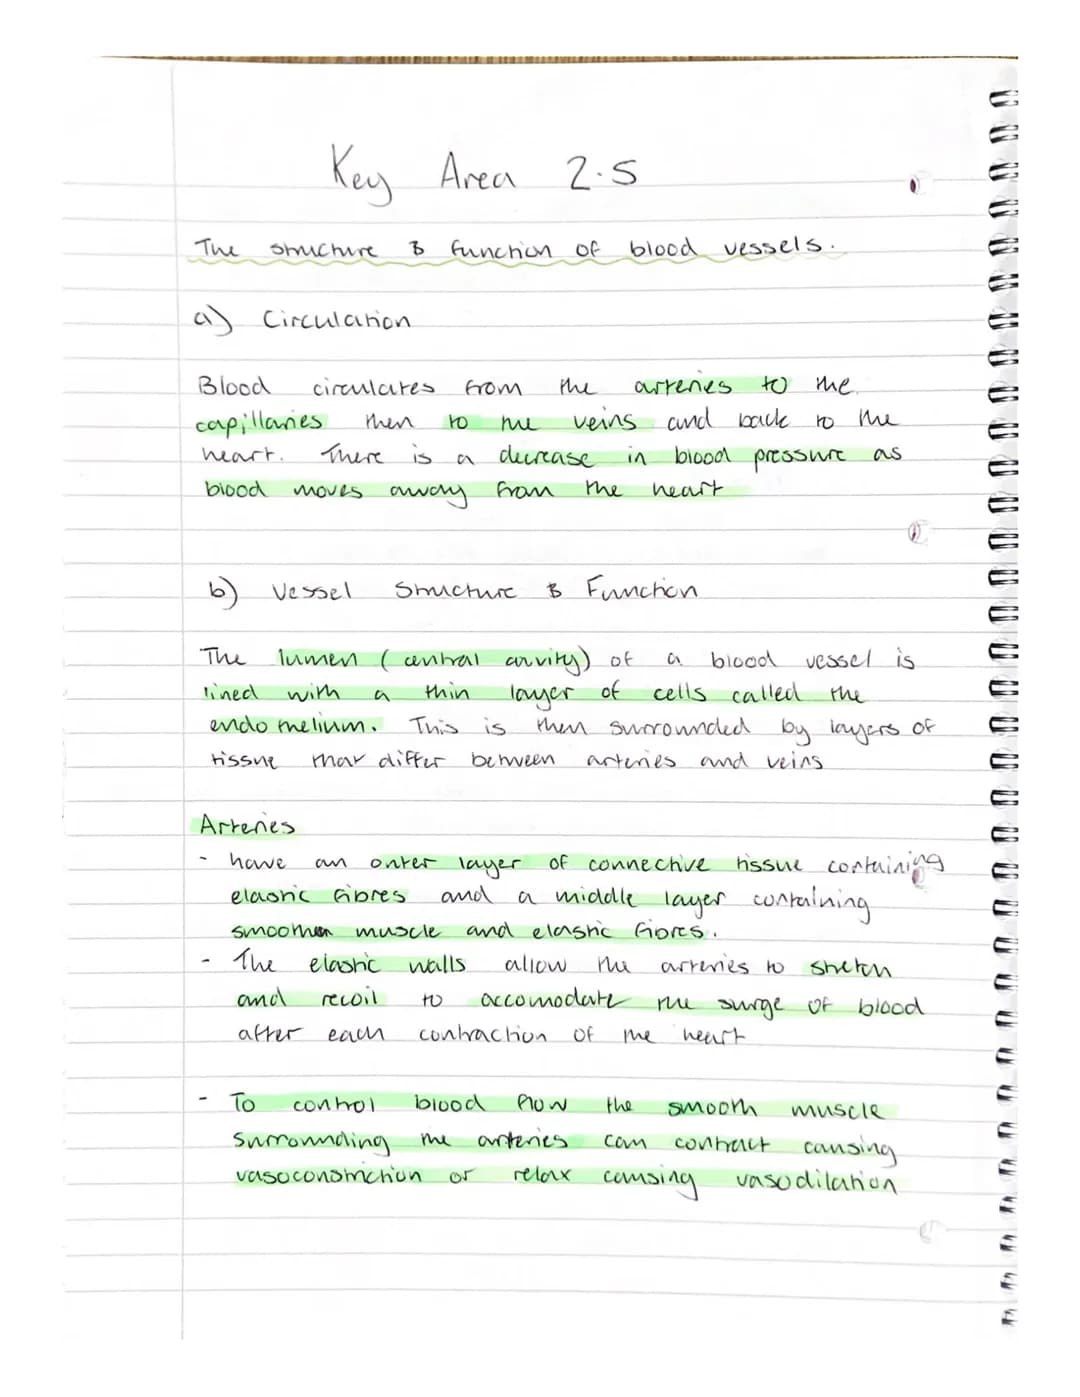 Key Area 2.5
The structure & function of blood vessels.
a) Circulation
Blood circulates from the arteries to the
capillaries then to the veins and back to the
heart. There is a decrease in blood pressure as
blood moves away from the heart
b) Vessel Structure & Function
The lumen (central cavity) of a blood vessel is
lined with a thin layer of cells called the
endothelium. This is then surrounded by layers of
tissue that differ between arteries and veins
Arteries
- have an outer layer of connective tissue containing
elastic fibres and a middle layer containing
smooth muscle and elastic fibres.
- The elastic walls allow the arteries to stretch
and recoil to accomodate the surge of blood
after each contraction of the heart
- To control blood flow the smooth muscle
surrounding the arteries can contract causing
vasoconstriction or relax causing vasodilation